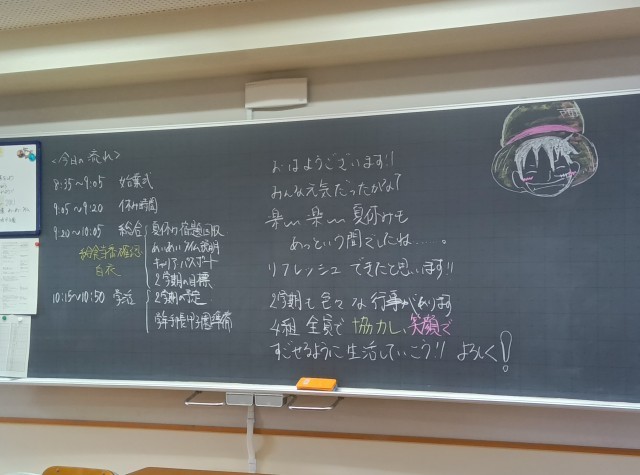 <今日の流れ>
8:35〜9:05 始業式
9:05〜9:20 休み時間
9:20〜10:05 総合
夏休みの宿題回収
キャリア・パスポート
2学期の目標
給食当番確認
白衣
10:15〜10:50 学活
2学期の
おはようございます!!
みんな元気だったかな?
楽しい楽しい夏休みも
あっという間でしたね……。
リフレッシュできたと思います!!
2学期も色々な行事があります
4組全員で協力し、笑顔で
すごせるように生活していこう!! よろしく!